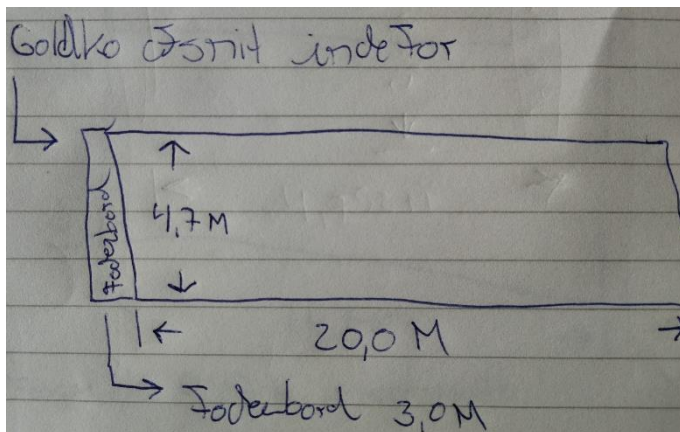 Goldko afsnit indefor
4,7 M
Foderbord
20,0 M
Foderbord 3,0 M